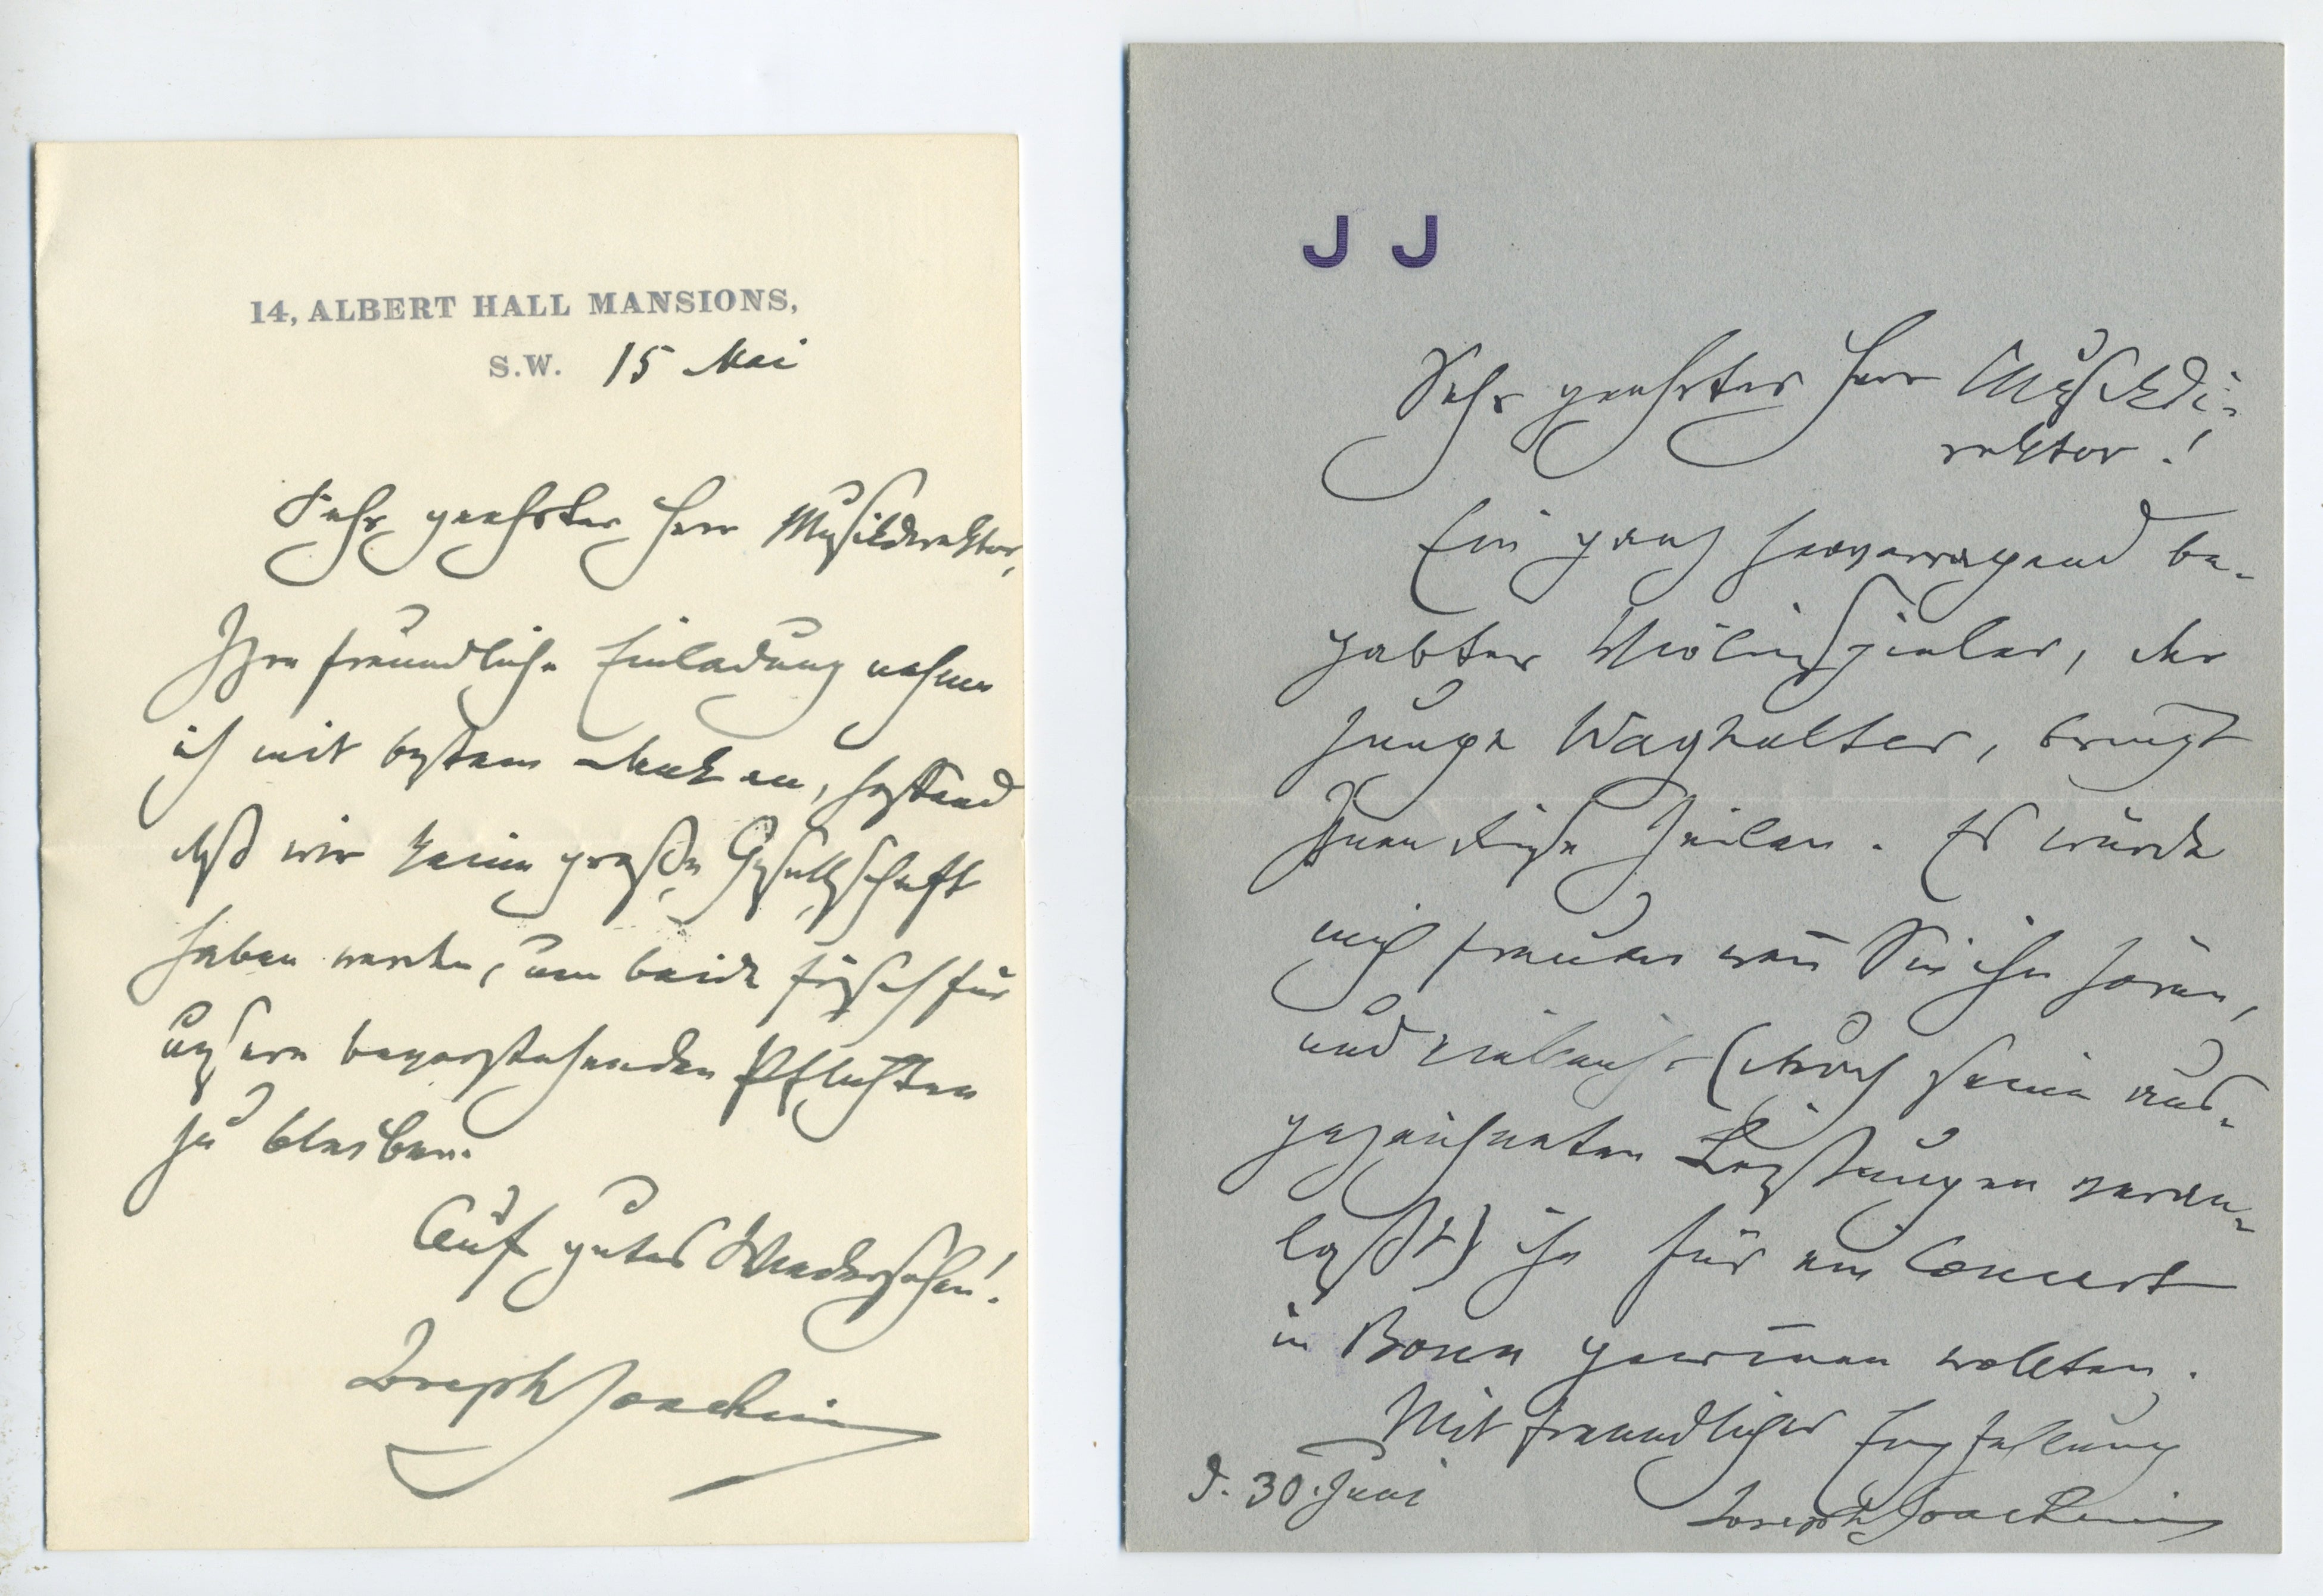 14, ALBERT HALL MANSIONS,
S.W. 15 Mai
Sehr geehrter Herr Musikdirektor,
Ihre freundliche Einladung nehme
ich mit bestem Dank an, hoffend
daß wir keine große Gesellschaft
haben werden, um beide frisch für
unsere bevorstehenden Pflichten
zu bleiben.
Auf gutes Wiedersehen!
Joseph Joachim
J J
Sehr geehrter Herr Musikdi-
rektor!
Ein ganz hervorragend be-
gabter Violinspieler, der
junge Waghalter, bringt
Ihnen diese Zeilen. Es würde
mich freuen wenn Sie ihn hören,
und vielleicht (durch seine aus-
gezeichneten Leistungen veran-
laßt) ihn für ein Concert
in Bonn gewinnen wollten.
Mit freundlicher Empfehlung
d. 30. Juni
Joseph Joachim